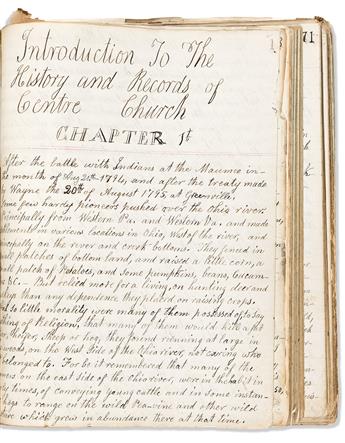 Introduction To The
History and Records of
Centre Church
CHAPTER 1st
After the battle with Indians at the Maumee in
the month of Aug 20th 1794, and after the treaty made
Wayne the 20th of August 1795, at Greenville,
some few hardy pioneers pushed over the Ohio river.
Principally from Western Pa. and Western Va. and made
in various locations in Ohio, West of the river, and
on the river and creek bottoms. They fenced in
small patches of bottom land, and raised a little corn, a
small patch of Potatoes, and some pumpkins, beans, Cucum-
&C. But relied more for a living, on hunting deer and
than any dependence they placed on raising crops.
so little morality were many of them possessed of, to say
nothing of Religion, that many of them would
Sheep or hog, they found running at large in
woods, on the West Side of the Ohio river, not caring who
belonged to. For be it remembered that many of the
on the east side of the ohio river, were in the habit in
times, of conveying young cattle and in some instan-
to range on the wild Pea-vine and other wild
which grew in abundance there at that time.
71